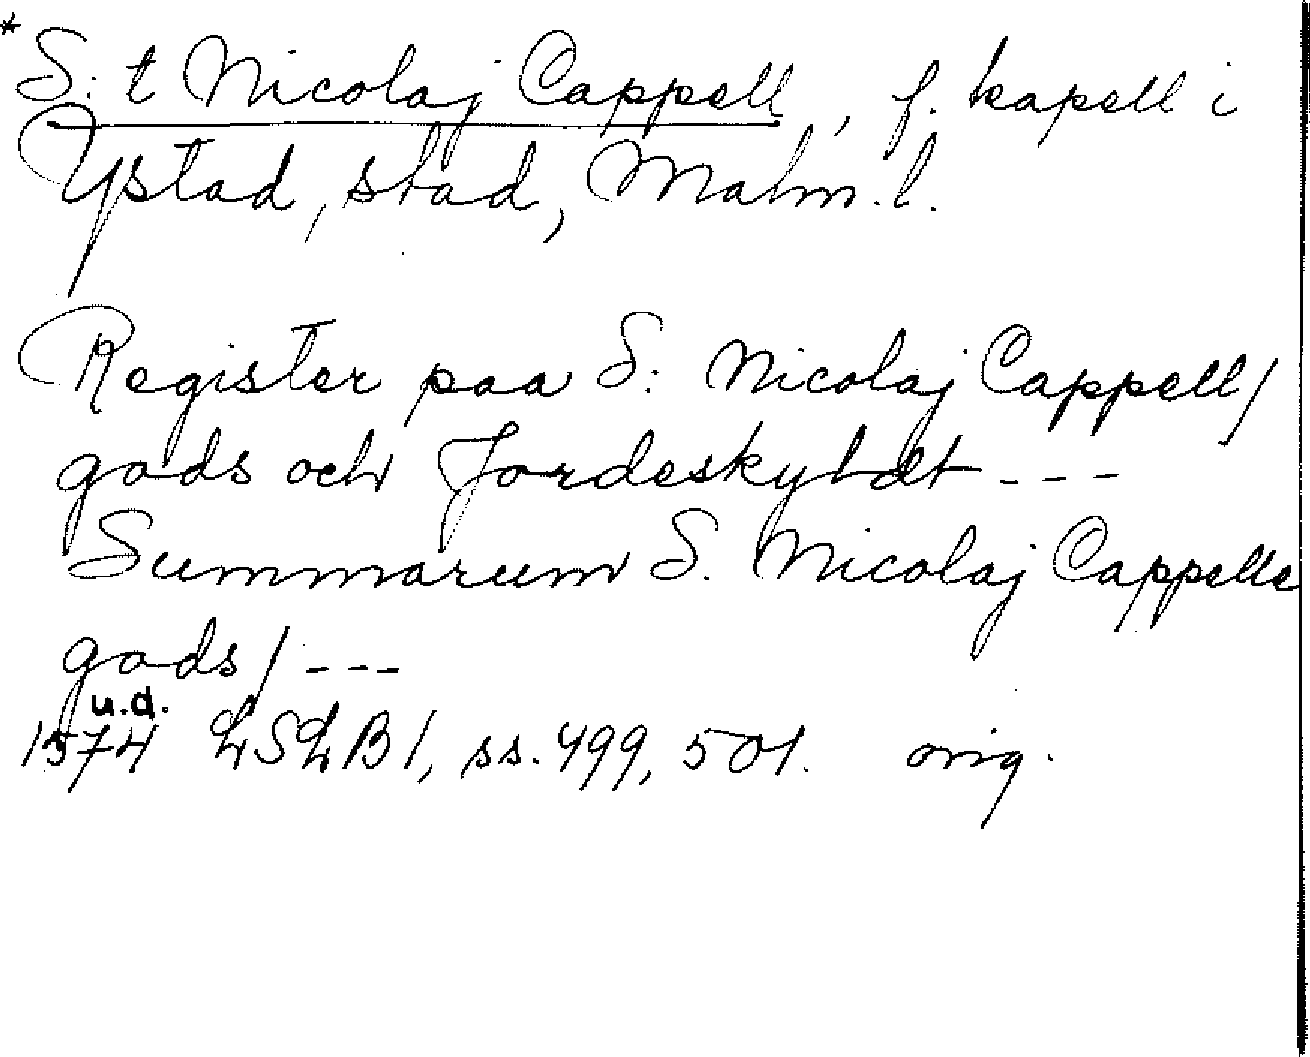 * S: t Nicolaj Cappell, f. kapell i
Ystad, stad, Malm. l.
Register paa S: Nicolaj Cappell/
gods och Jordeskyldt ---
Summarum S. Nicolaj Cappells
gods/ ---
u.d.
1574 LSLB 1, ss. 499, 501. orig.